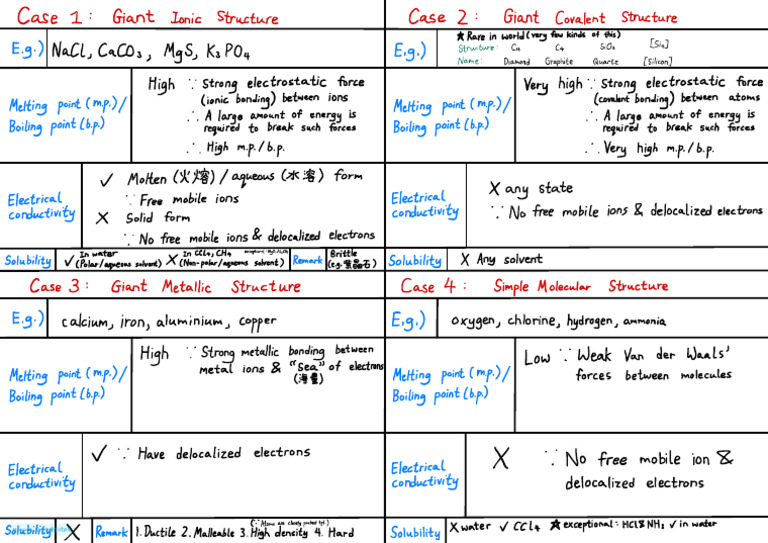 Case 1: Giant Ionic Structure
E.g.) NaCl, CaCO₃, MgS, K₃PO₄
Melting point (m.p.)/
Boiling point (b.p.)
High ∵ Strong electrostatic force
(ionic bonding) between ions
∴ A large amount of energy is
required to break such forces
∴ High m.p./b.p.
Electrical
conductivity
✓ Molten (火熔) / aqueous (水溶) form
∵ Free mobile ions
✗ Solid form
∵ No free mobile ions & delocalized electrons
Solubility
✓ In water
(Polar/aqueous solvent)
✗ In CCl₄, CH₄
(Non-polar/aqueous solvent)
Remark
Brittle
Case 2: Giant Covalent Structure
E.g.)
★ Rare in world (very few kinds of this)
Structure: SiO₂
Name: Diamond Graphite Quartz [Silicon]
Melting point (m.p.)/
Boiling point (b.p.)
Very high ∵ Strong electrostatic force
(covalent bonding) between atoms
∴ A large amount of energy is
required to break such forces
∴ Very high m.p./b.p.
Electrical
conductivity
X any state
∵ No free mobile ions & delocalized electrons
Solubility
X Any solvent
Case 3: Giant Metallic Structure
E.g.) calcium, iron, aluminium, copper
Melting point (m.p.)/
Boiling point (b.p.)
High ∵ Strong metallic bonding between
metal ions & "Sea" of electrons
(海量)
Electrical
conductivity
✓ ∵ Have delocalized electrons
Solubility
X
Remark
(∵ Atoms are closely packed tgt.)
1. Ductile 2. Malleable 3. High dencity 4. Hard
Case 4: Simple Molecular Structure
E.g.) oxygen, chlorine, hydrogen, ammonia
Melting point (m.p.)/
Boiling point (b.p.)
Low ∵ Weak Van der Waals'
forces between molecules
Electrical
conductivity
X ∵ No free mobile ion &
delocalized electrons
Solubility
X water ✓ CCl₄ ★ exceptional: HCl & NH₃ ✓ in water